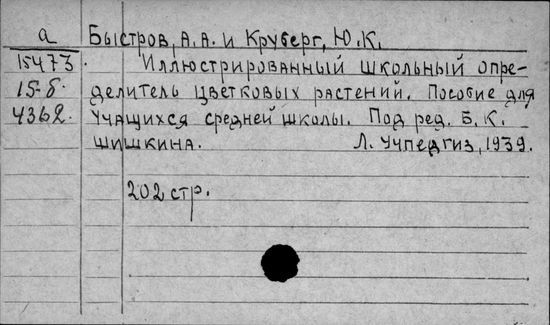 а Быстров, А. А. и Круберг, Ю. К.
15473. Иллюстрированный школьный опре-
15-б. делитель цветковых растений. Пособие для
4362. учащихся средней школы. Под ред. Б. К.
Шишкина. Л. Учпедгиз, 1939.
202 стр.